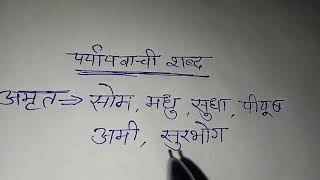 पर्यायवाची शब्द
अमृत ⇒ सोम, मधु, सुधा, पीयूष
अमी, सुरभोग